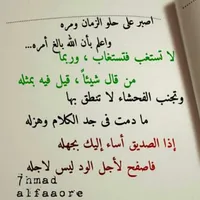 أصبر على حلو الزمان ومره
واعلم بأن الله بالغ أمره...
لا تستغب فتستغاب ، وربما
من قال شيئاً ، قيل فيه بمثله
وتجنب الفحشاء لا تنطق بها
ما دمت فى جد الكلام وهزله
إذا الصديق أساء إليك بجهله
فاصفح لأجل الود ليس لاجله
7hmad
alfaaore